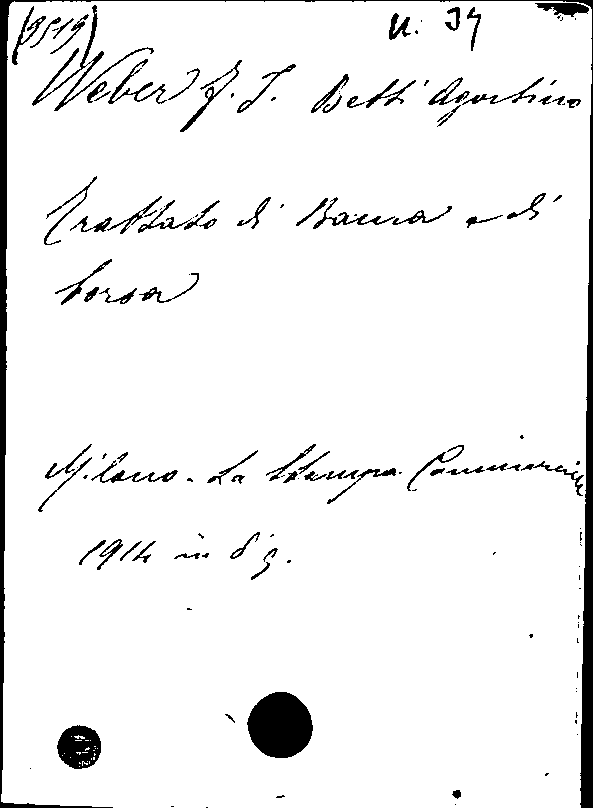 (9519) U. 34
Weber F. J. Betti Agostino
Trattato di Banca e di
borsa
Milano - La Stampa Commerciale
1914 in 8° g.